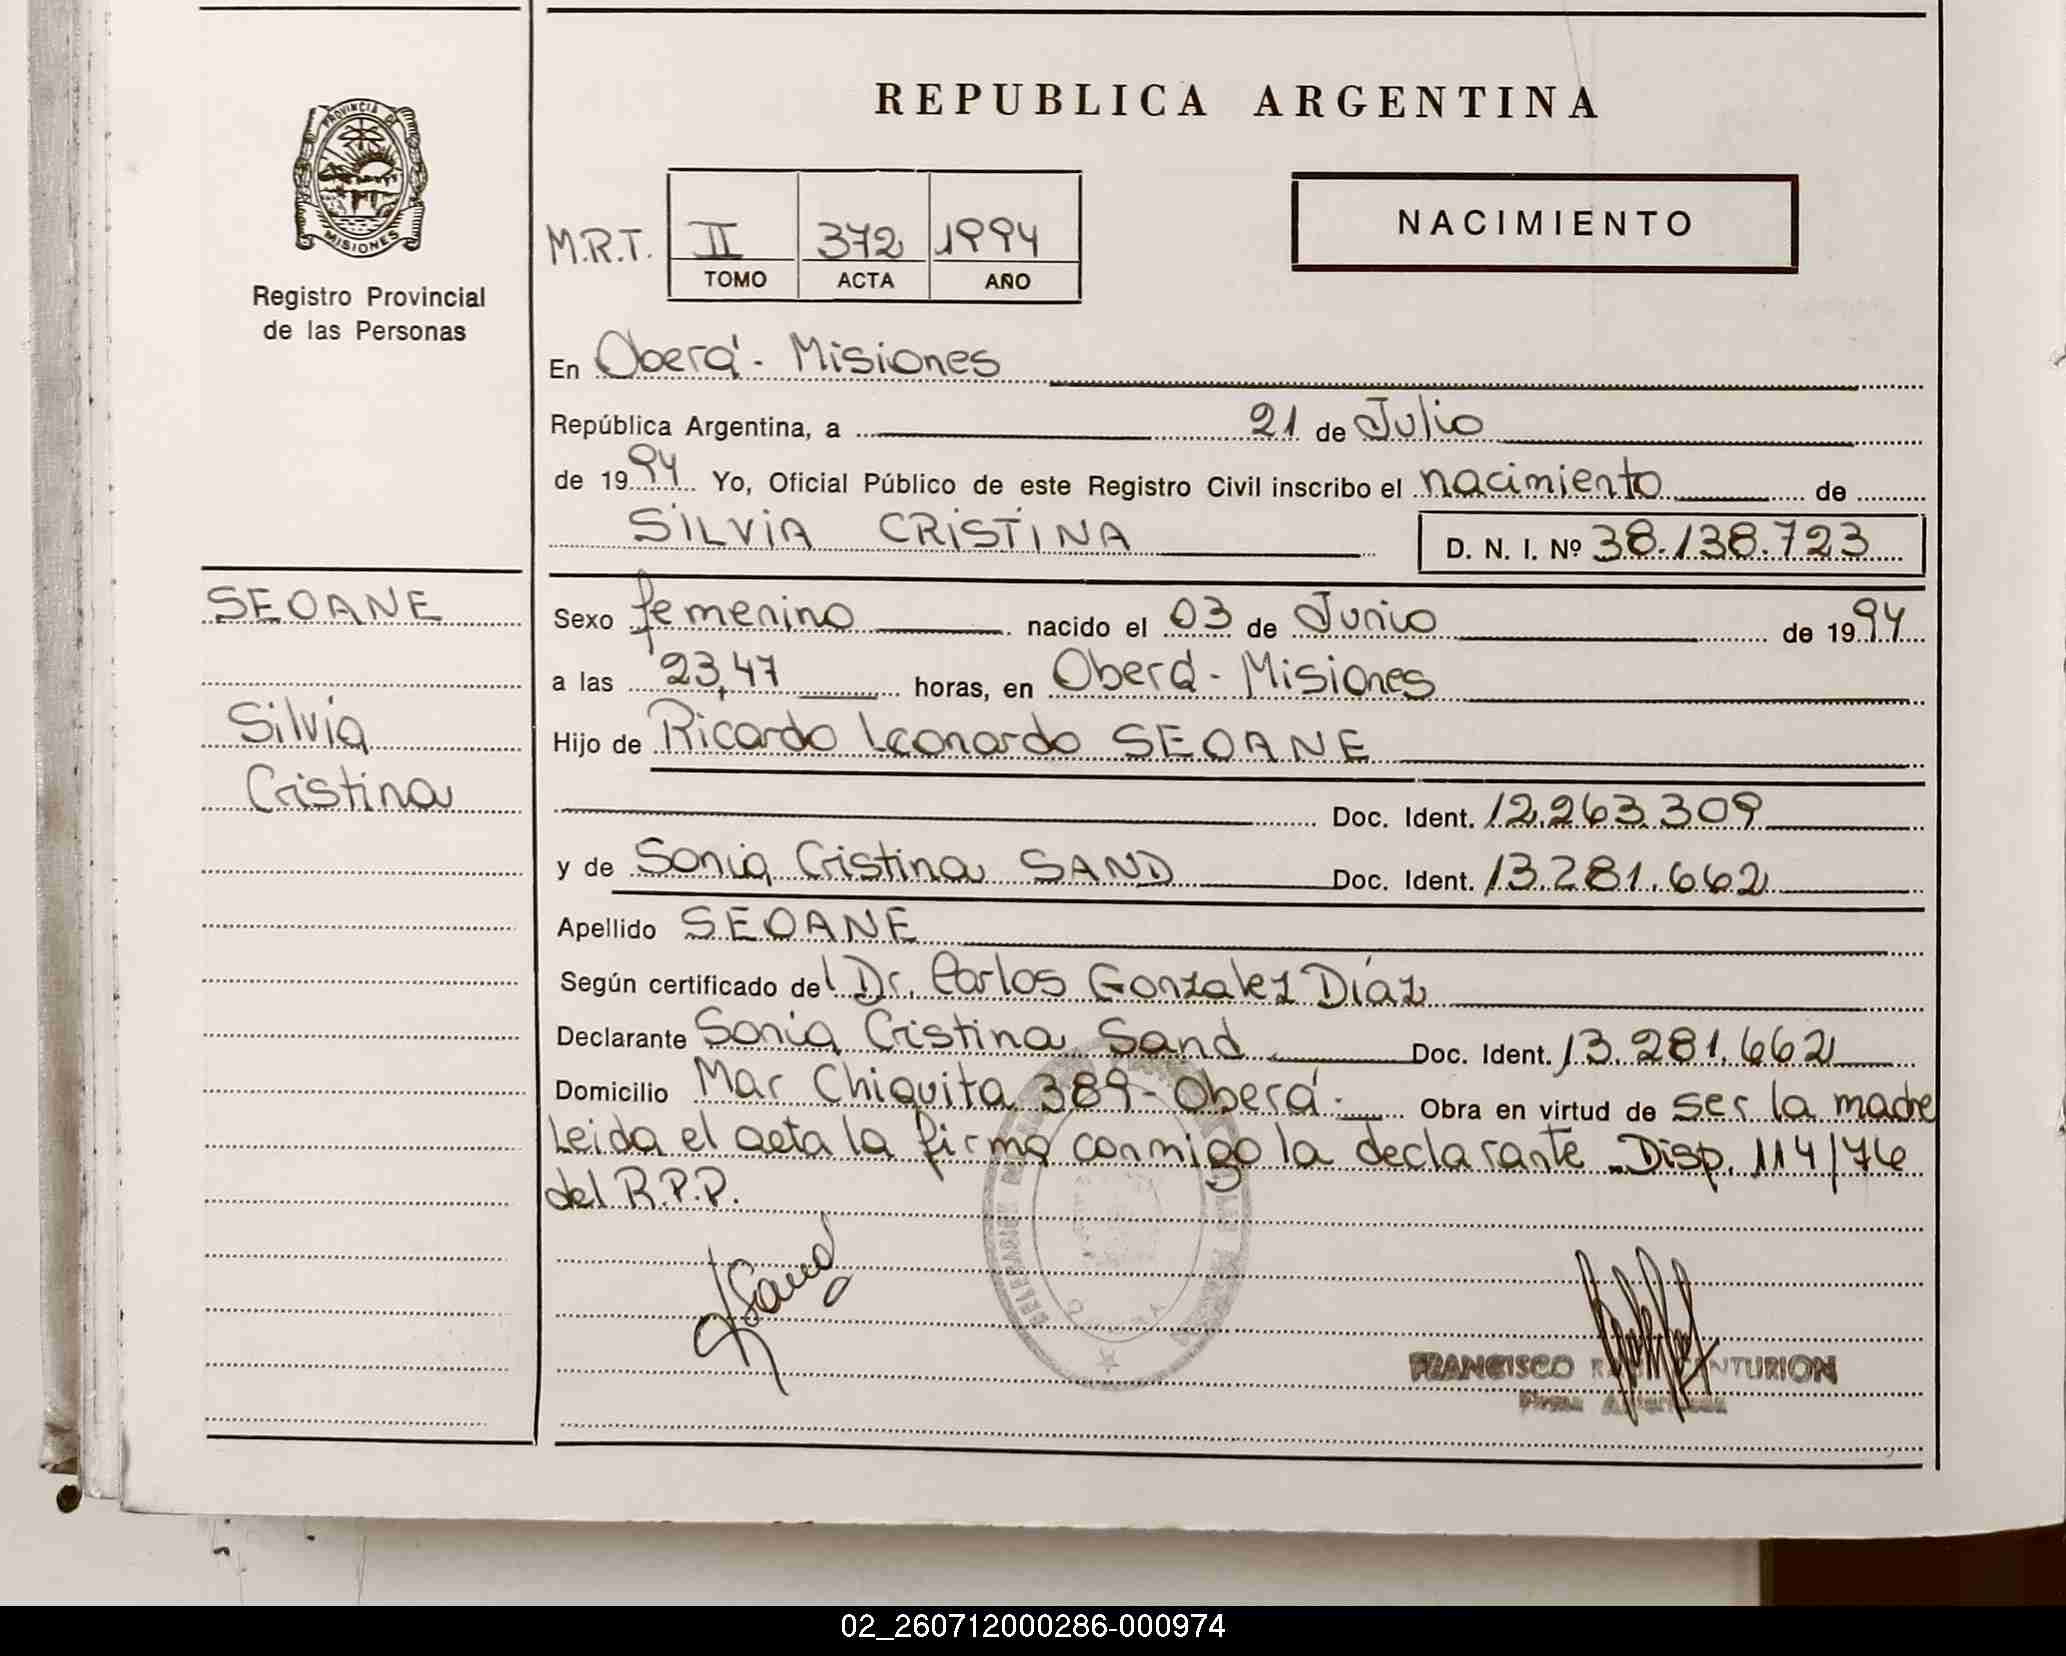 REPUBLICA ARGENTINA
PROVINCIA DE
MISIONES
Registro Provincial
de las Personas
NACIMIENTO
M.R.T. II 372 1994
TOMO ACTA AÑO
En Oberá - Misiones
República Argentina, a 21 de Julio
de 1994 Yo, Oficial Público de este Registro Civil inscribo el nacimiento de
SILVIA CRISTINA D. N. I. Nº 38.138.723
SEOANE
Silvia
Cristina
Sexo femenino nacido el 03 de Junio de 1994
a las 23,47 horas, en Oberá - Misiones
Hijo de Ricardo Leonardo SEOANE
Doc. Ident. 12.263.309
y de Sonia Cristina SAND Doc. Ident. 13.281.662
Apellido SEOANE
Según certificado del Dr. Carlos Gonzalez Díaz
Declarante Sonia Cristina Sand Doc. Ident. 13.281.662
Domicilio Mar Chiquita 389 - Oberá - Obra en virtud de ser la madre
Leida el acta la firma conmigo la declarante - Disp. 114/76
del R.P.P.
Sand
FRANCISCO CENTURION
02_260712000286-000974